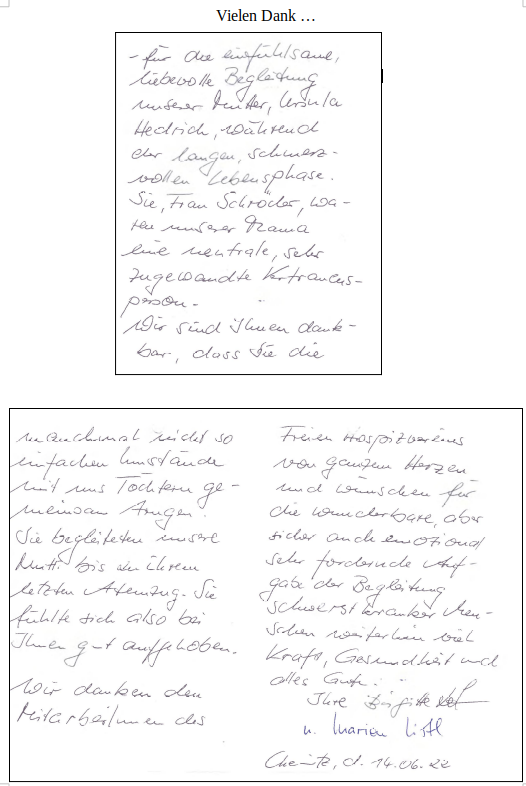 Vielen Dank …
- für die einfühlsame,
liebevolle Begleitung
unserer Mutter, Ursula
Hedrich, während
der langen, schmerz-
vollen Lebensphase.
Sie, Frau Schröder, wa-
ren unserer Mama
eine neutrale, sehr
zugewandte Vertrauens-
person.
Wir sind Ihnen dank-
bar, dass Sie die
manchmal nicht so
einfachen Umstände
mit uns Töchtern ge-
meinsam trugen.
Sie begleiteten unsere
Mutti bis zu ihrem
letzten Atemzug. Sie
fühlte sich also bei
Ihnen gut aufgehoben.
Wir danken den
MitarbeiInnen des
Freien Hospizvereines
von ganzem Herzen
und wünschen für
die wunderbare, aber
sicher auch emotional
sehr fordernde Auf-
gabe der Begleitung
schwerstkranker Men-
schen weiterhin viel
Kraft, Gesundheit und
alles Gute.
Ihre Birgitt
u. Marion
d. 14.06.22